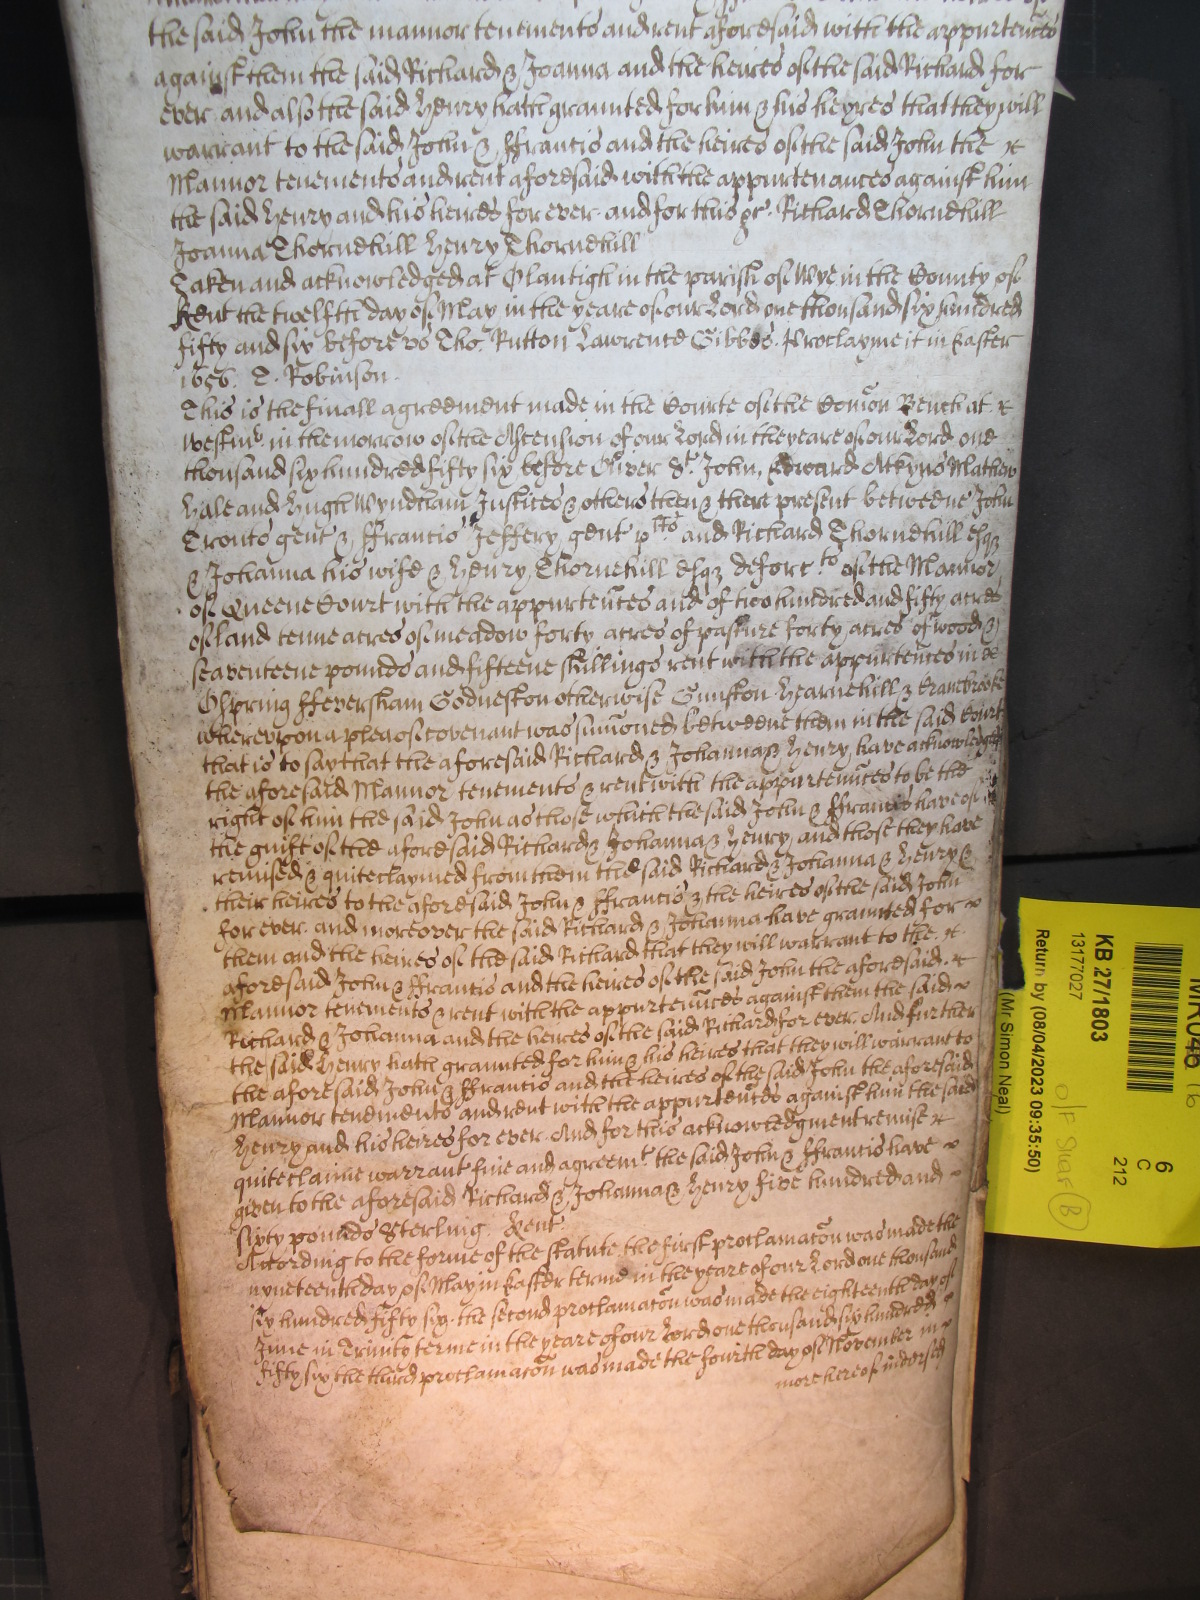 the said John the mannor tenements and rent aforesaid with the appurtenčes
against them the said Richard & Joanna and the heires of the said Richard for
ever. and also the said Henry hath graunted for him & his heyres that they will
warrant to the said John & ffrancis and the heires of the said John the
Mannor tenements and rent aforesaid with the appurtenances against him
the said Henry and his heires for ever. and for this &c. Richard Thornehill
Joanna Thornehill Henry Thornehill
Taken and acknowledged at Olantigh in the parish of Wye in the County of
Kent the twelfth day of May in the yeare of our Lord one thousand six hundred
fifty and six before vs Tho: Rutton Lawrence Gibbes. Proclayme it in Easter
1656. T. Robinson.
This is the finall agreement made in the Courte of the Comõn Bench at
Westmr. in the morrow of the Ascension of our Lord in the yeare of our Lord one
thousand six hundred fifty six before Oliver St. John, Edward Atkyns Mathew
Hale and Hugh Wyndham Justices & others then & there present betweene John
Cronts gent & ffrancis Jeffery, gent plts. and Richard Thornehill esqz
& Johanna his wife & Henry Thornehill esqz deforcts. of the Mannor
of Queene Court with the appurteñces and of two hundred and fifty acres
of land tenne acres of meadow forty acres of pasture forty acres of wood &
seaventeene pounds and fifteene shillings rent with the appurteñces in
Ospring ffeversham Godneston otherwise Gunston Hearnehill & Cranebrooke
wherevpon a plea of covenant was sum̃oned betweene them in the said Court
that is to say that the aforesaid Richard & Johanna & Henry have acknowledged
the aforesaid Mannor tenements & rent with the appurteñces to be the
right of him the said John as those which the said John & ffrancis have of
the guift of the aforesaid Richard & Johanna & Henry, and those they have
remised & quiteclaymed from them the said Richard & Johanna & Henry &
their heires to the aforesaid John & ffrancis & the heires of the said John
for ever. and moreover the said Richard & Johanna have graunted for
them and the heires of the said Richard that they will warrant to the
aforesaid John & ffrancis and the heires of the said John the aforesaid
Mannor tenements & rent with the appurteñces against them the said
Richard & Johanna and the heires of the said Richard for ever. And further
the said Henry hath graunted for him & his heires that they will warrant to
the aforesaid John & ffrancis and the heires of the said John the aforesaid
Mannor tenements and rent with the appurteñces against him the said
Henry and his heires for ever. And for this acknowledgment remise
quiteclaime warrant fine and agreemt. the said John & ffrancis have
given to the aforesaid Richard & Johanna & Henry five hundred and
sixty pounds Sterling. Kent
According to the forme of the statute the first proclamacõn was made the
nyneteenth day of May in Easter terme in the yeare of our Lord one thousand
six hundred fifty six. the second proclamacõn was made the eighteenth day of
June in Trinity terme in the yeare of our Lord one thousand six hundred
fifty six the third proclamacõn was made the fourth day of November in
more hereof indorsed
6
C
212
KB 27/1803
13177027
Return by (08/04/2023 09:35:50)
(Mr Simon Neal)